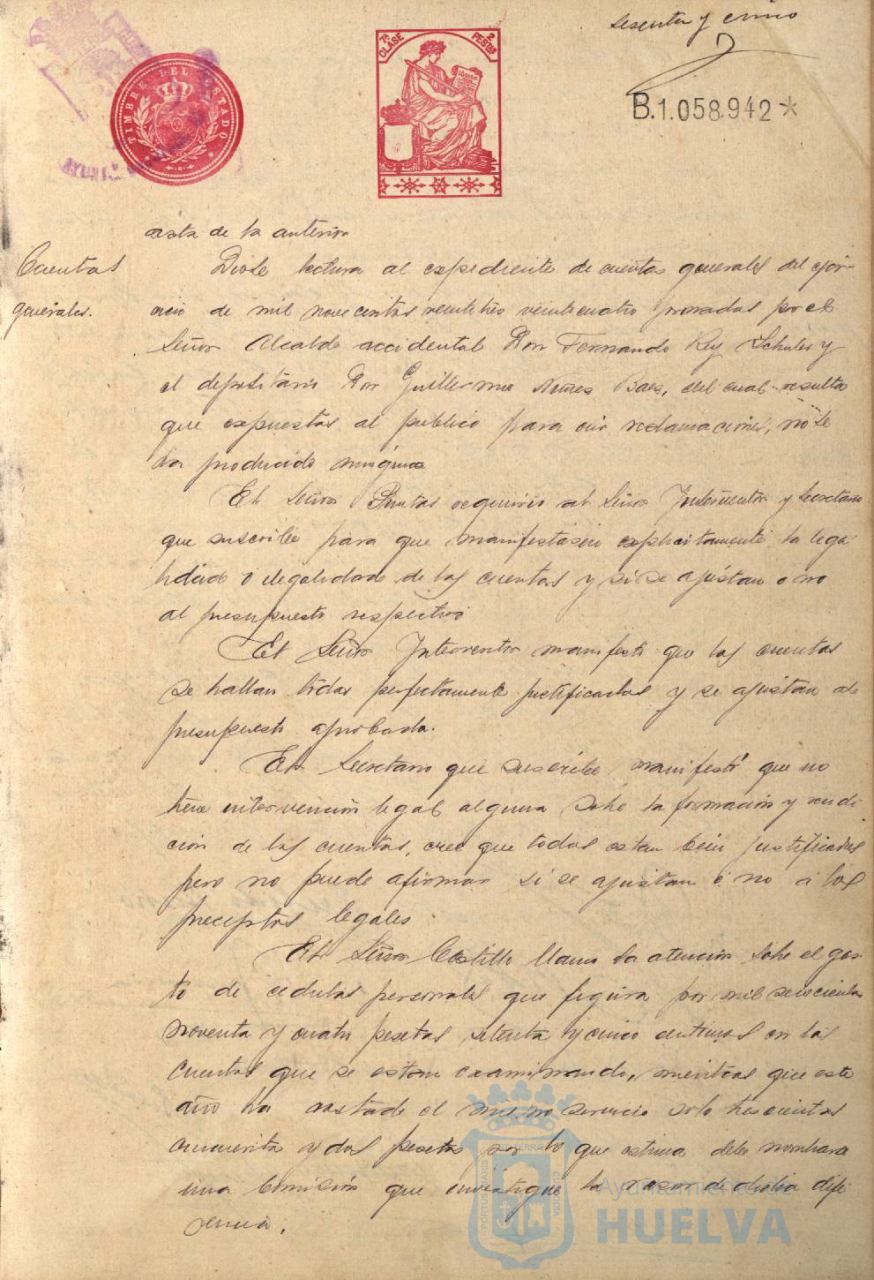 sesenta y cinco
TIMBRE DEL ESTADO
7ª CLASE 2 PESTAS
B.1.058.942*
acta de la anterior
Cuentas
generales.
Diose lectura al expediente de cuentas generales del ejer-
cicio de mil novecientos veintitres veinticuatro por el
Señor Alcalde accidental Don Fernando Rey y
el depositario Don Guillermo Nuñez Baez, del cual resulta
que expuestas al publico para oir reclamaciones, no se
ha producido ninguna
El Señor requirió al Señor Interventor y Secretario
que suscribe para que manifestasen explicitamente la lega
lidad o ilegalidad de las cuentas y si se ajustan o no
al presupuesto respectivo
El Señor Interventor manifestó que las cuentas
se hallan todas perfectamente justificadas y se ajustan al
presupuesto aprobado.
El Secretario que suscribe, manifestó que no
tiene intervención legal alguna sobre la formación y rendi
ción de las cuentas, cree que todas estan bien justificadas
pero no puede afirmar si se ajustan o no a los
preceptos legales.
El Señor Castillo llama la atención sobre el gas-
to de cedulas personales que figura por mil seiscientas
noventa y cuatro pesetas setenta y cinco centimos en las
cuentas que se estan examinando, mientras que este
año ha costado el mismo servicio solo trescientas
cuarenta y dos pesetas por lo que estima debe nombrarse
una Comisión que investigue la razon de dicha dife
rencia.
Ayuntamiento de
HUELVA